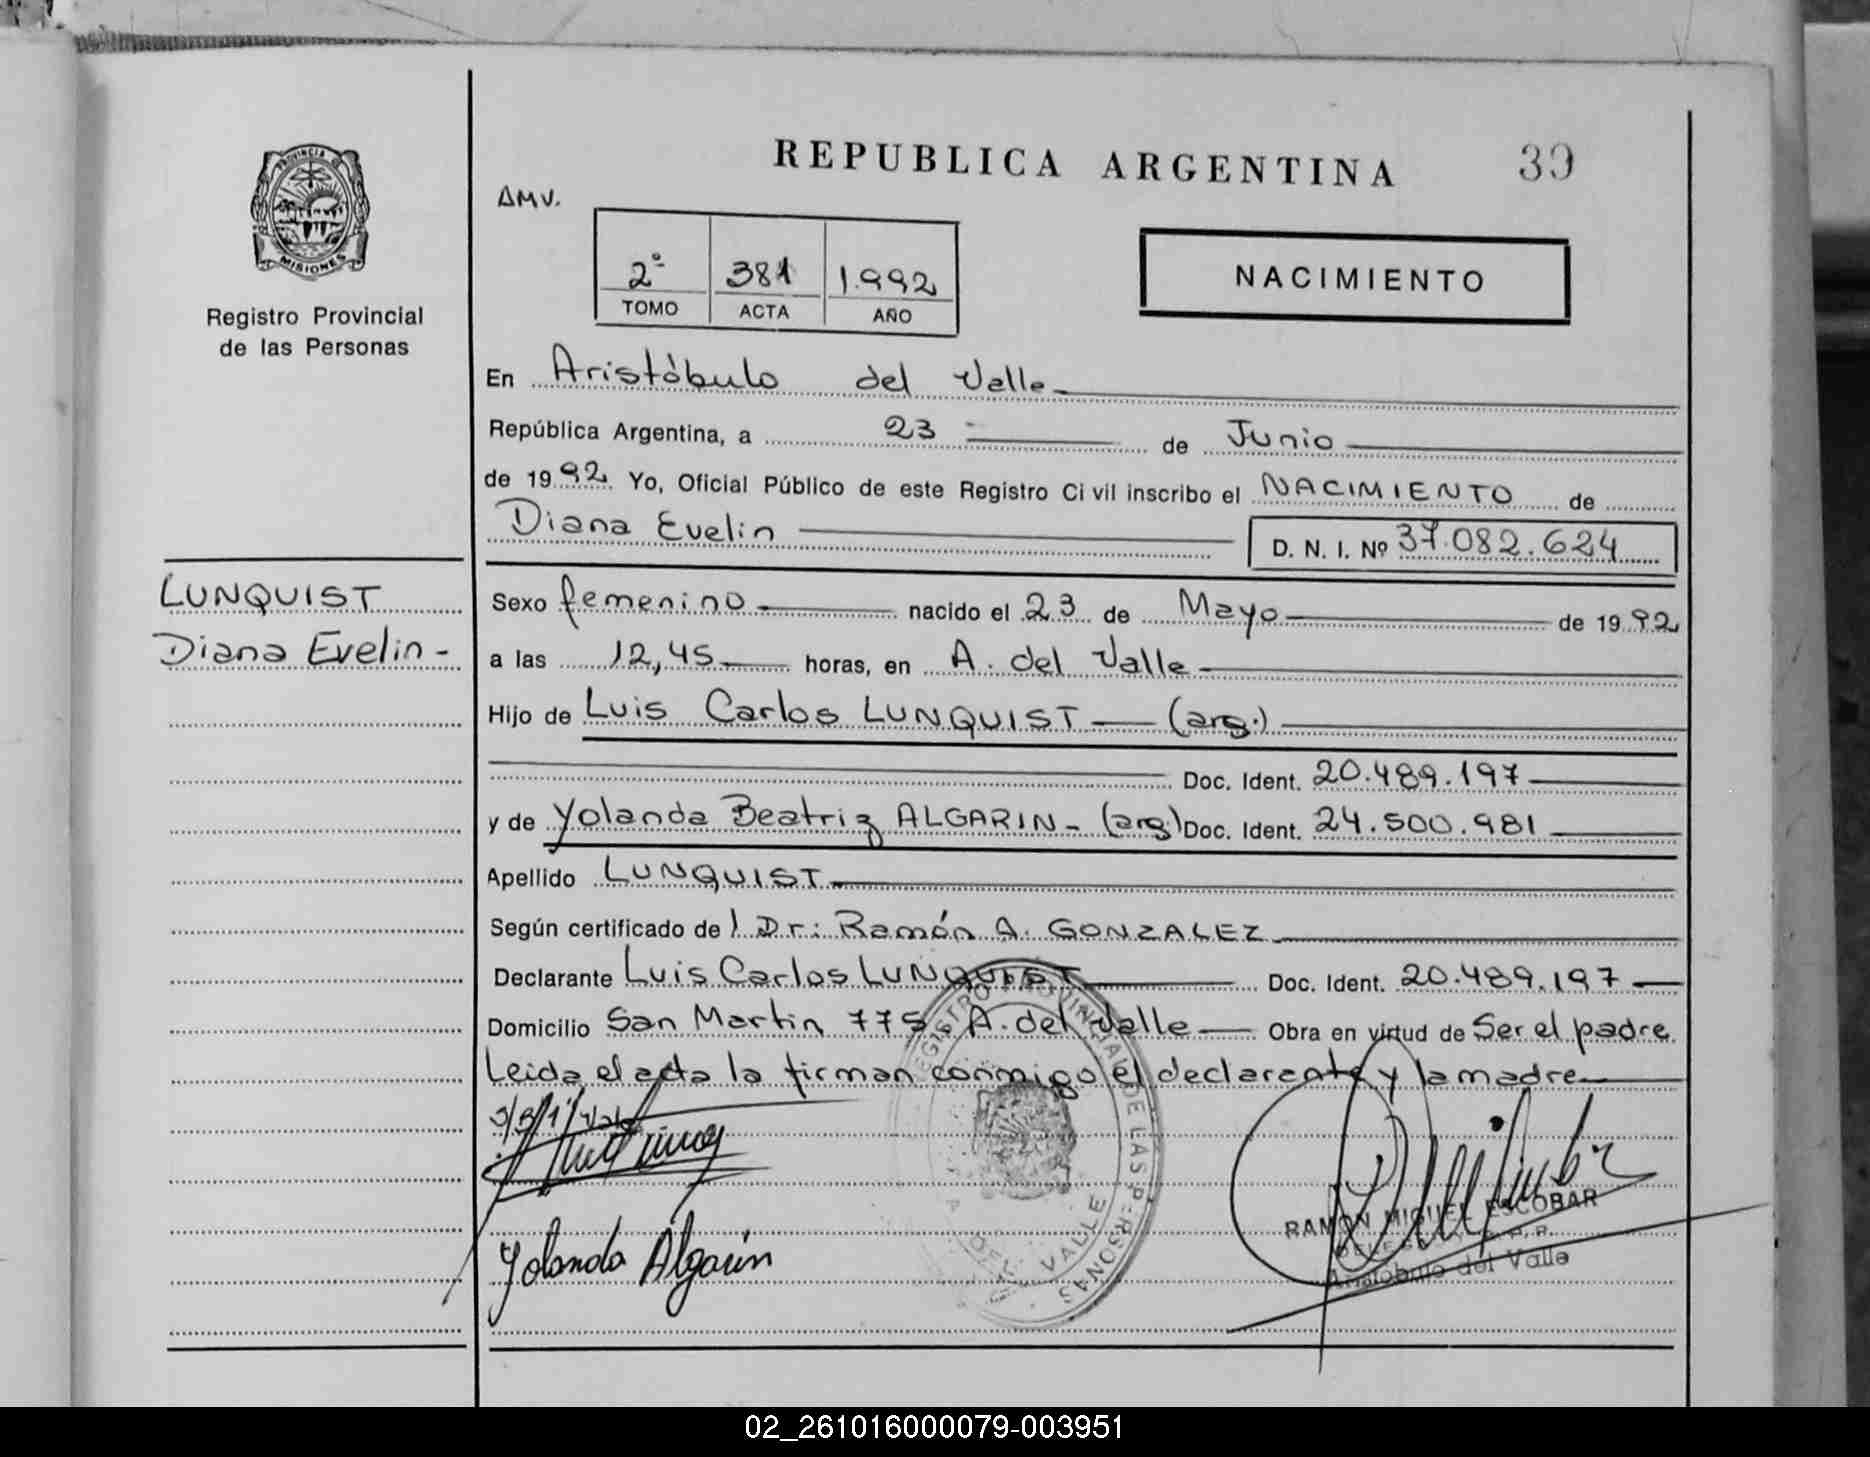 REPUBLICA ARGENTINA
39
AMV.
PROVINCIA DE
MISIONES
Registro Provincial
de las Personas
2º 381 1.992
TOMO ACTA AÑO
NACIMIENTO
En Aristóbulo del Valle
República Argentina, a 23 de Junio
de 1992 Yo, Oficial Público de este Registro Civil inscribo el NACIMIENTO de
Diana Evelin
D. N. I. Nº 37.082.624
LUNQUIST
Diana Evelin -
Sexo femenino nacido el 23 de Mayo de 1992
a las 12,45 horas, en A. del Valle
Hijo de Luis Carlos LUNQUIST (arg.)
Doc. Ident. 20.489.197
y de Yolanda Beatriz ALGARIN - (arg) Doc. Ident. 24.500.981
Apellido LUNQUIST
Según certificado de l Dr: Ramón A. GONZALEZ
Declarante Luis Carlos LUNQUIST Doc. Ident. 20.489.197
Domicilio San Martin 775 A. del Valle Obra en virtud de Ser el padre
Leida el acta la firman conmigo el declarante y la madre
REGISTRO PROVINCIAL DE LAS PERSONAS
DEL VALLE
Yolanda Algarin
RAMON MIGUEL ESCOBAR
Aristobulo del Valle
02_261016000079-003951